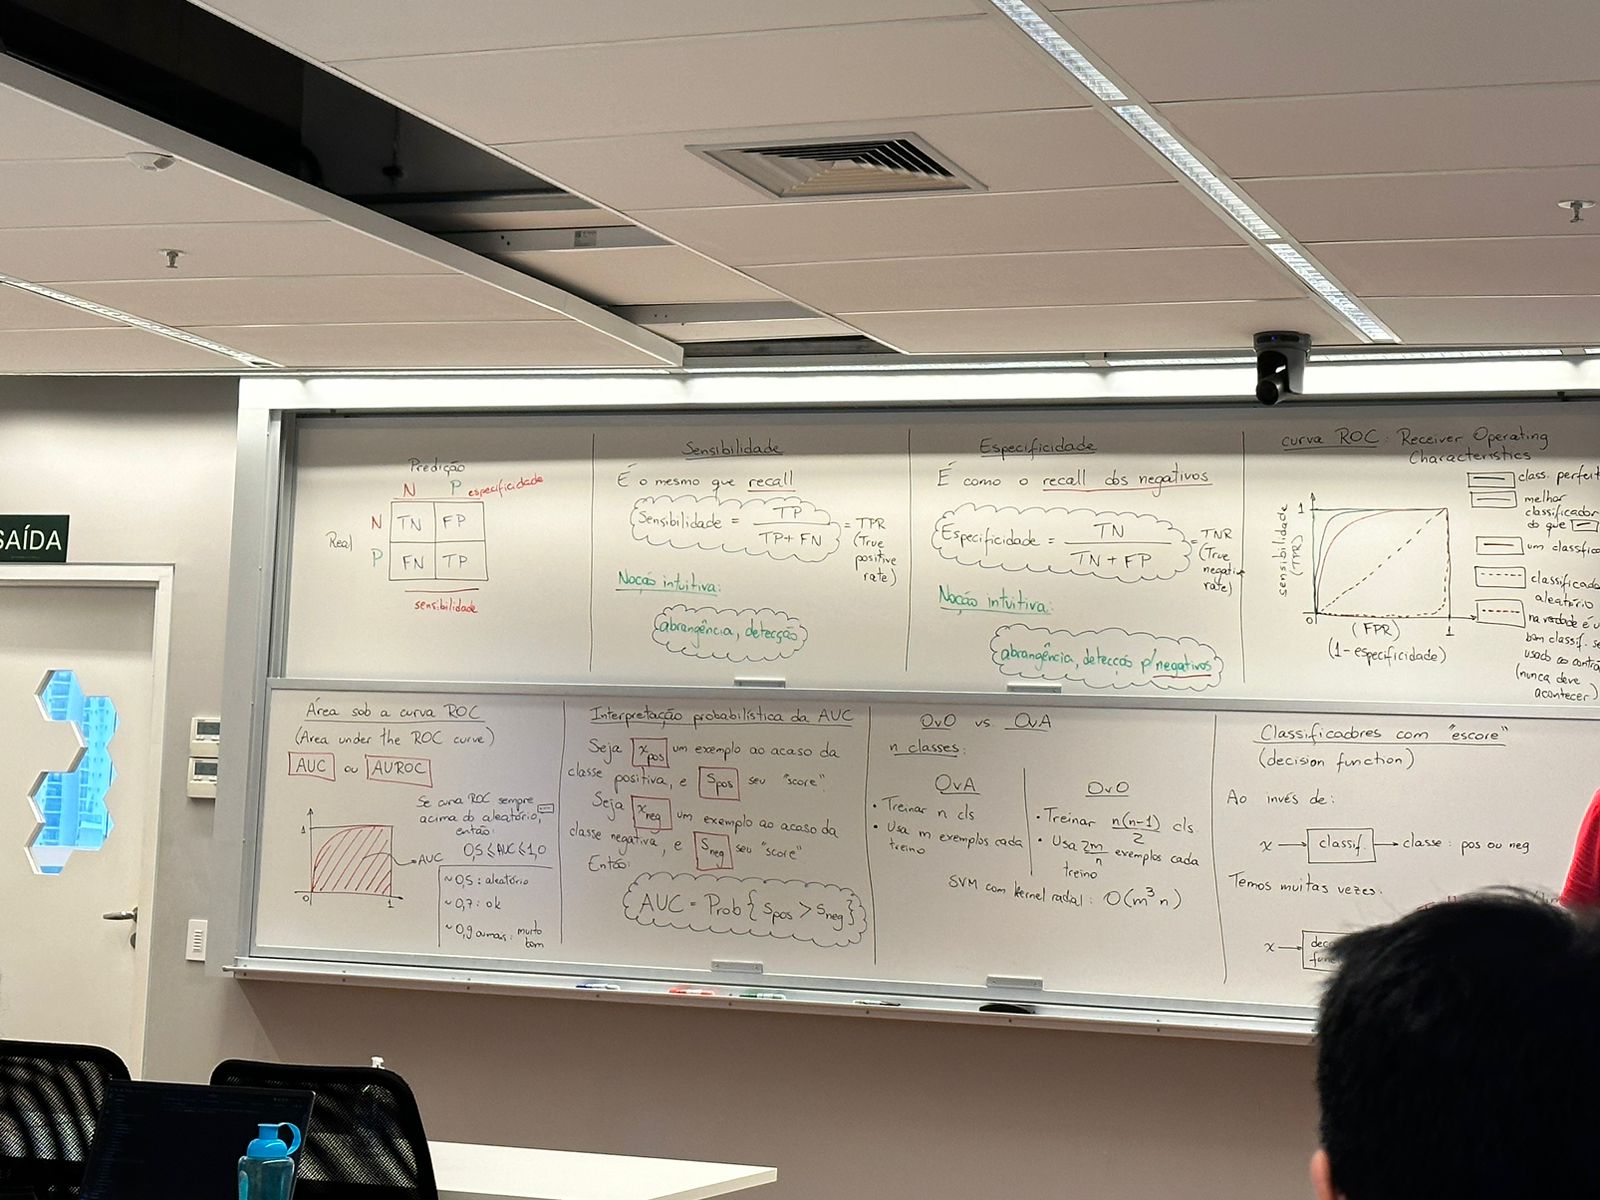 SAÍDA
Predição
N P especificidade
Real
N TN FP
P FN TP
sensibilidade
Sensibilidade
É o mesmo que recall
Sensibilidade = TP / TP + FN = TPR
(True
positive
rate)
Noção intuitiva:
abrangência, detecção
Especificidade
É como o recall dos negativos
Especificidade = TN / TN + FP = TNR
(True
negative
rate)
Noção intuitiva:
abrangência, detecção p/ negativos
curva ROC: Receiver Operating
Characteristics
sensibilidade
(TPR)
1
0
1
(FPR)
(1 - especificidade)
class. perfeit
melhor
classificador
do que
um classific
classificado
aleatório
na verdade é u
bom classif. se
usado ao contrá
(nunca deve
acontecer)
Área sob a curva ROC
(Area under the ROC curve)
AUC ou AUROC
Se curva ROC sempre
acima do aleatório,
então:
0,5 ≤ AUC ≤ 1,0
1
0
1
AUC
~0,5: aleatório
~0,7: ok
~0,9 ou mais: muito
bom
Interpretação probabilística da AUC
Seja xpos um exemplo ao acaso da
classe positiva, e spos seu "score"
Seja xneg um exemplo ao acaso da
classe negativa, e sneg seu "score"
Então:
AUC = Prob{spos > sneg}
OvO vs. OvA
n classes:
OvA
• Treinar n cls
• Usa m exemplos cada
treino
OvO
• Treinar n(n-1)/2 cls
• Usa 2m/n exemplos cada
treino
SVM com kernel radial: O(m³n)
Classificadores com "escore"
(decision function)
Ao invés de:
x → classif. → classe: pos ou neg
Temos muitas vezes:
x →